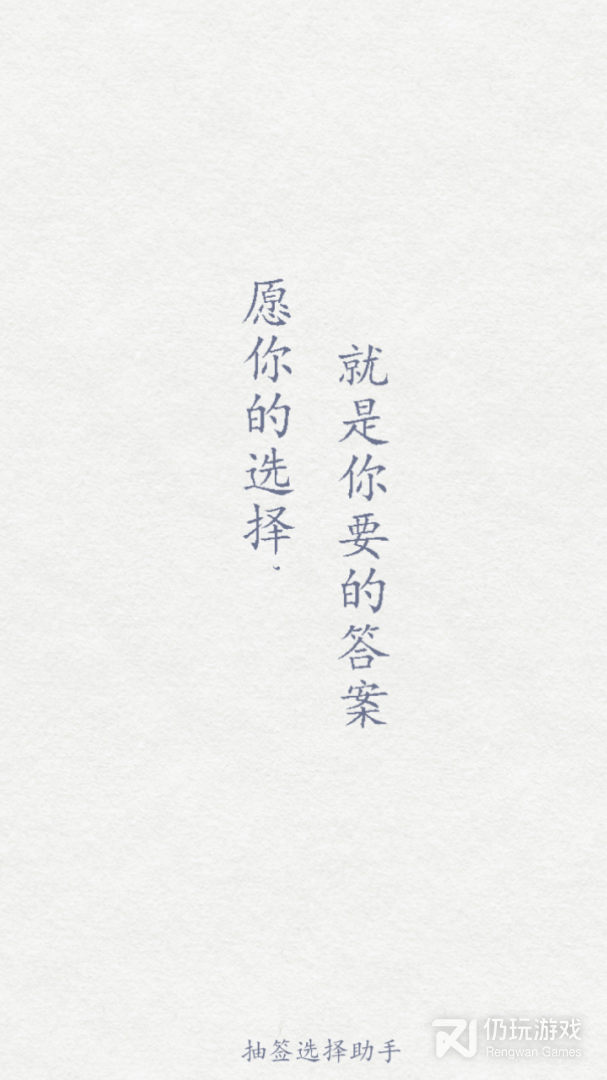 愿你的选择.
就是你要的答案
抽签选择助手
仍玩游戏
Rengwan Games